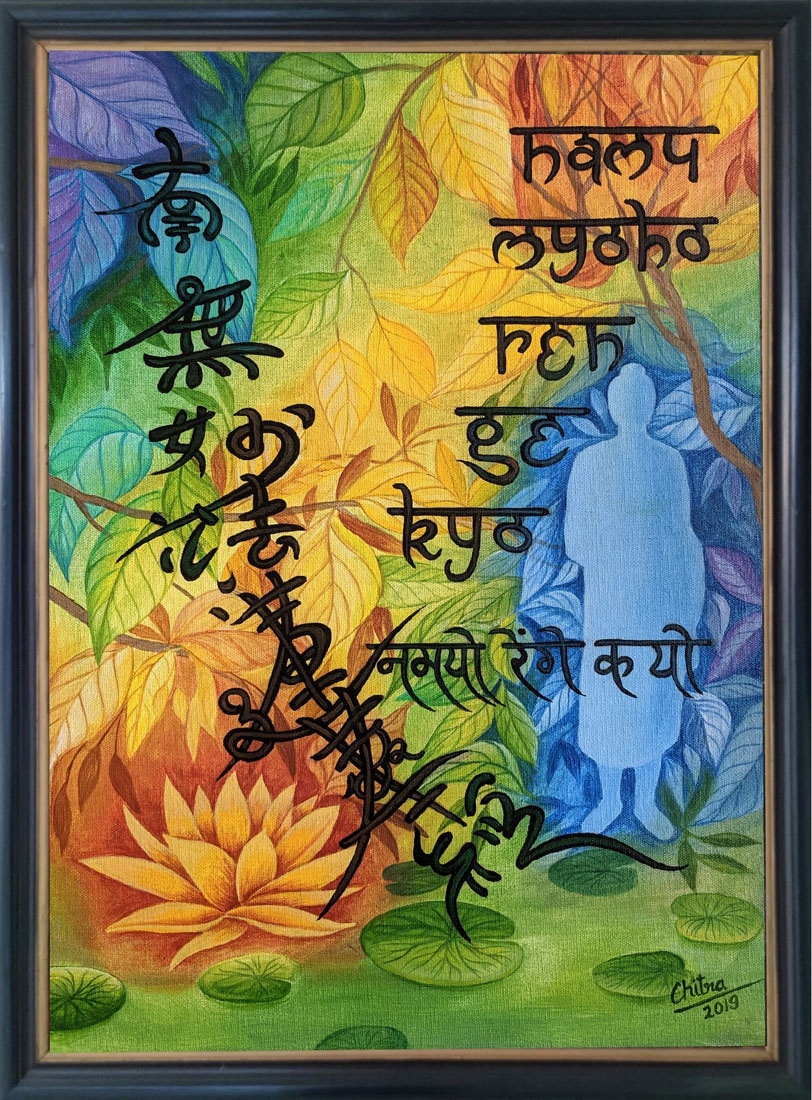 南無妙法蓮華經
namu
myoho
ren
ge
kyo
नमयो रेंगे क यो
Chitra
2019